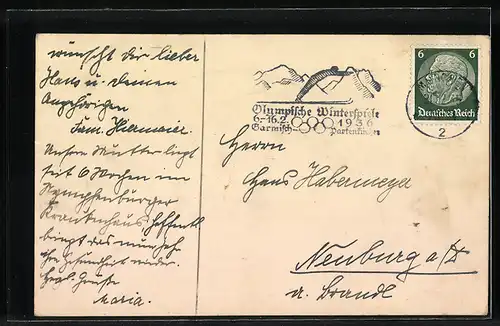 wünscht dir lieber
Hans u. deinen
Angehörigen
Fam. Hiermaier
Unsere Mutter liegt
seit 6 Wochen im
Nymphenburger
Krankenhaus hoffentl.
bringt das
ihre Gesundheit wieder.
Herzl. Grüße
Maria.
Olympische Winterspiele
6.-16.2. 1936
Garmisch-Partenkirchen
6 6
Deutsches Reich
2
Herrn
Hans Habermeyer
Neuburg a/D
a. Brandl